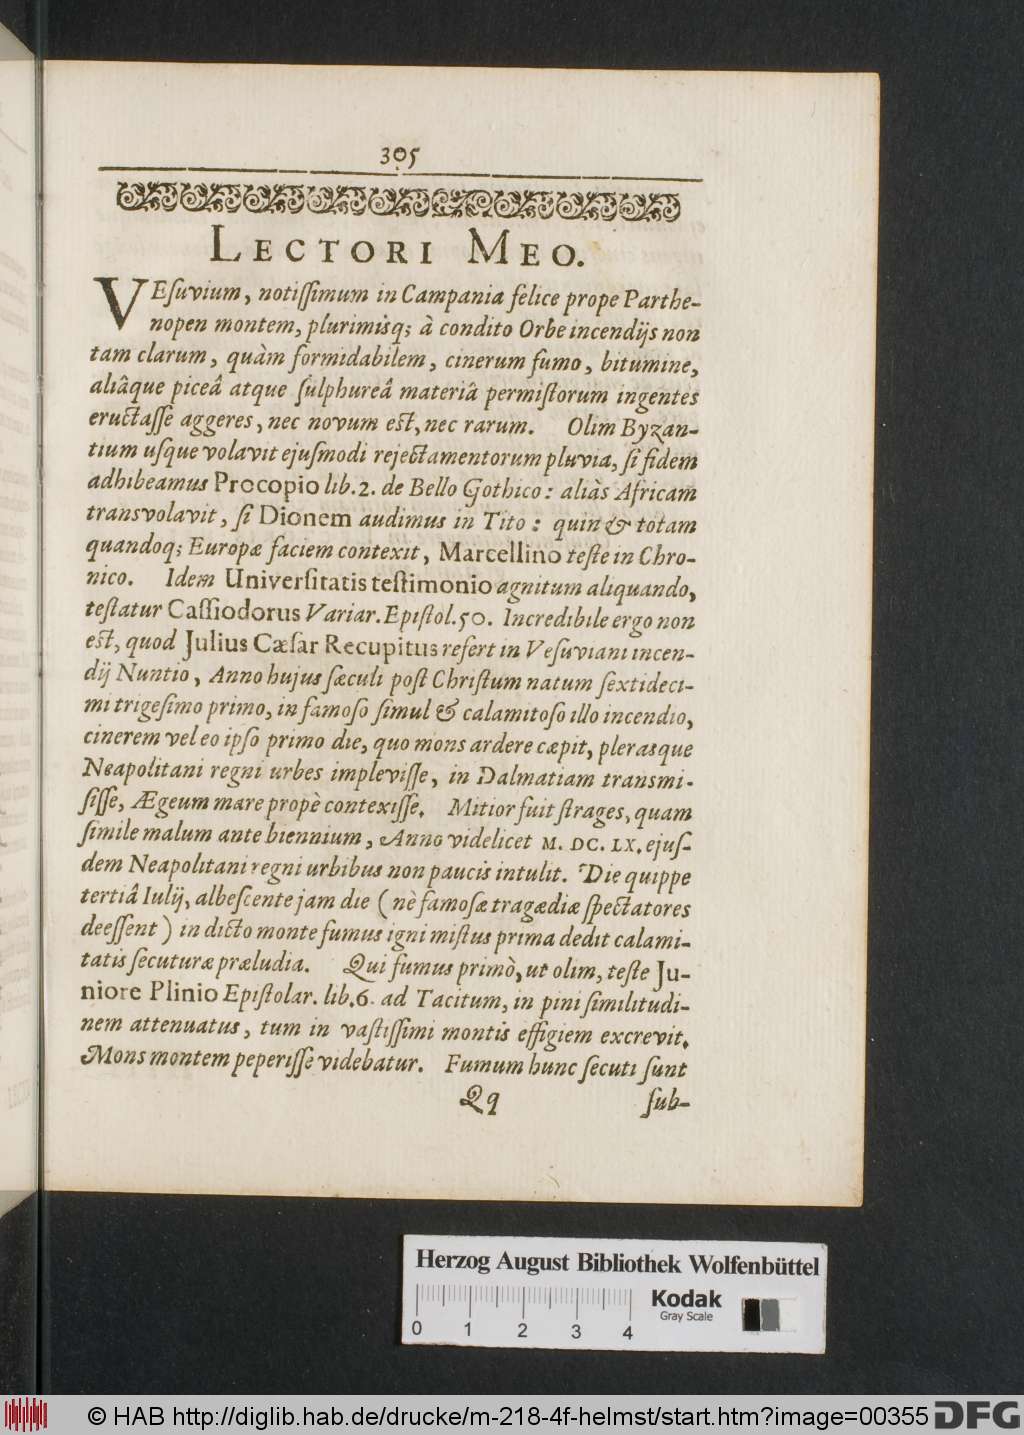 305
LECTORI MEO.
VEſuvium, notiſſimum in Campania felice prope Parthe-
nopen montem, plurimisq; à condito Orbe incendijs non
tam clarum, quàm formidabilem, cinerum fumo, bitumine,
aliâque piceâ atque ſulphureâ materiâ permiſtorum ingentes
eructaſſe aggeres, nec novum est, nec rarum. Olim Byzan-
tium uſque volavit ejuſmodi rejectamentorum pluvia, ſi fidem
adhibeamus Procopio lib. 2. de Bello Gothico: aliàs Africam
transvolavit, ſi Dionem audimus in Tito: quin & totam
quandoq; Europæ faciem contexit, Marcellino teſte in Chro-
nico. Idem Univerſitatis teſtimonio agnitum aliquando,
teſtatur Caſſiodorus Variar. Epiſtol. 50. Incredibile ergo non
est, quod Julius Cæſar Recupitus refert in Veſuviani incen-
dij Nuntio, Anno hujus ſæculi poſt Chriſtum natum ſextideci-
mi trigeſimo primo, in famoſo ſimul & calamitoſo illo incendio,
cinerem vel eo ipſo primo die, quo mons ardere cæpit, plerasque
Neapolitani regni urbes impleviſſe, in Dalmatiam transmi-
ſiſſe, Ægeum mare propè contexiſſe. Mitior fuit ſtrages, quam
ſimile malum ante biennium, Anno videlicet M. DC. LX. ejuſ-
dem Neapolitani regni urbibus non paucis intulit. Die quippe
tertiâ Iulij, albeſcente jam die (nè famoſæ tragædiæ ſpectatores
deeſſent) in dicto monte fumus igni miſtus prima dedit calami-
tatis ſecuturæ præludia. Qui fumus primò, ut olim, teſte Ju-
niore Plinio Epiſtolar. lib. 6. ad Tacitum, in pini ſimilitudi-
nem attenuatus, tum in vaſtiſſimi montis effigiem excrevit.
Mons montem peperiſſe videbatur. Fumum hunc ſecuti ſunt
Qq ſub-
Herzog August Bibliothek Wolfenbüttel
Kodak
Gray Scale
0 1 2 3 4
© HAB http://diglib.hab.de/drucke/m-218-4f-helmst/start.htm?image=00355 DFG